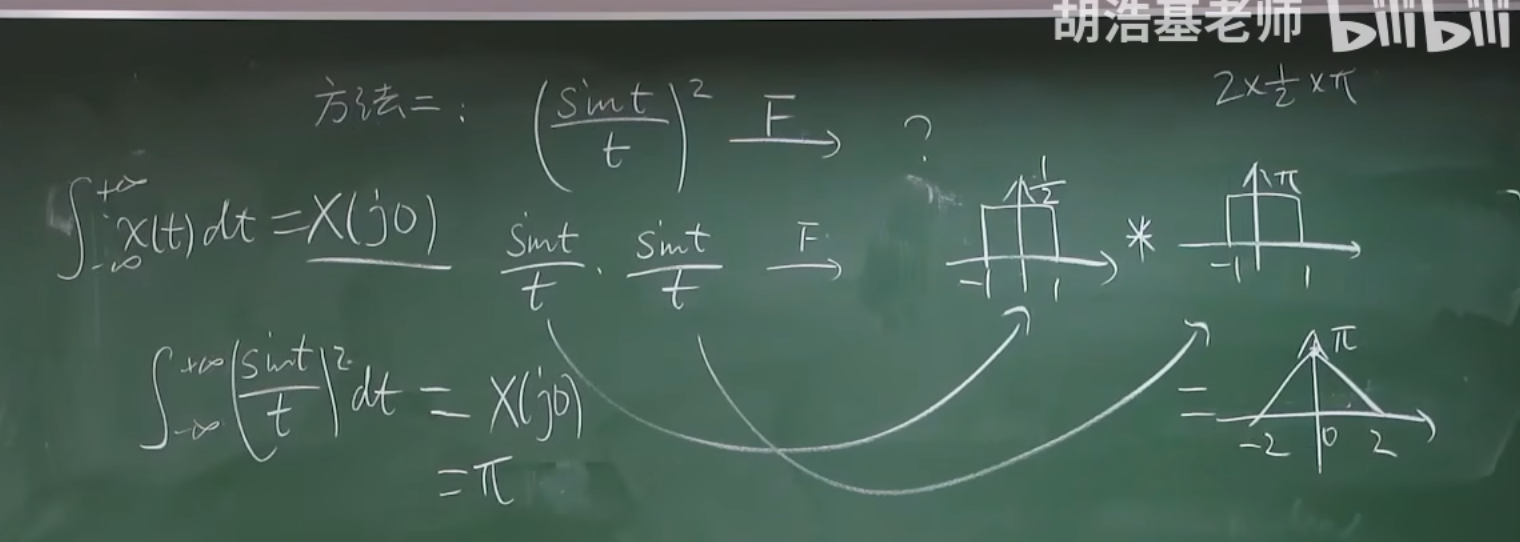 胡浩基老师 bilibili
2×½×π
方法二: (sint/t)² F→ ?
∫_{-∞}^{+∞} x(t)dt = X(j0)
sint/t · sint/t F→ 1/2 -1 1 * π -1 1
∫_{-∞}^{+∞} (sint/t)² dt = X(j0)
= π
= π -2 0 2